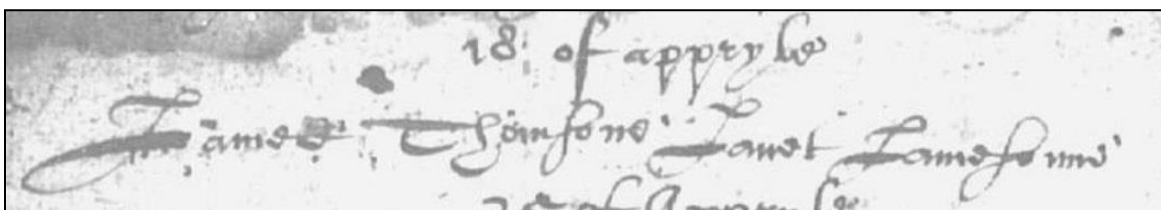 18 of appryle
James Thomsone Janet Jamesonne
of